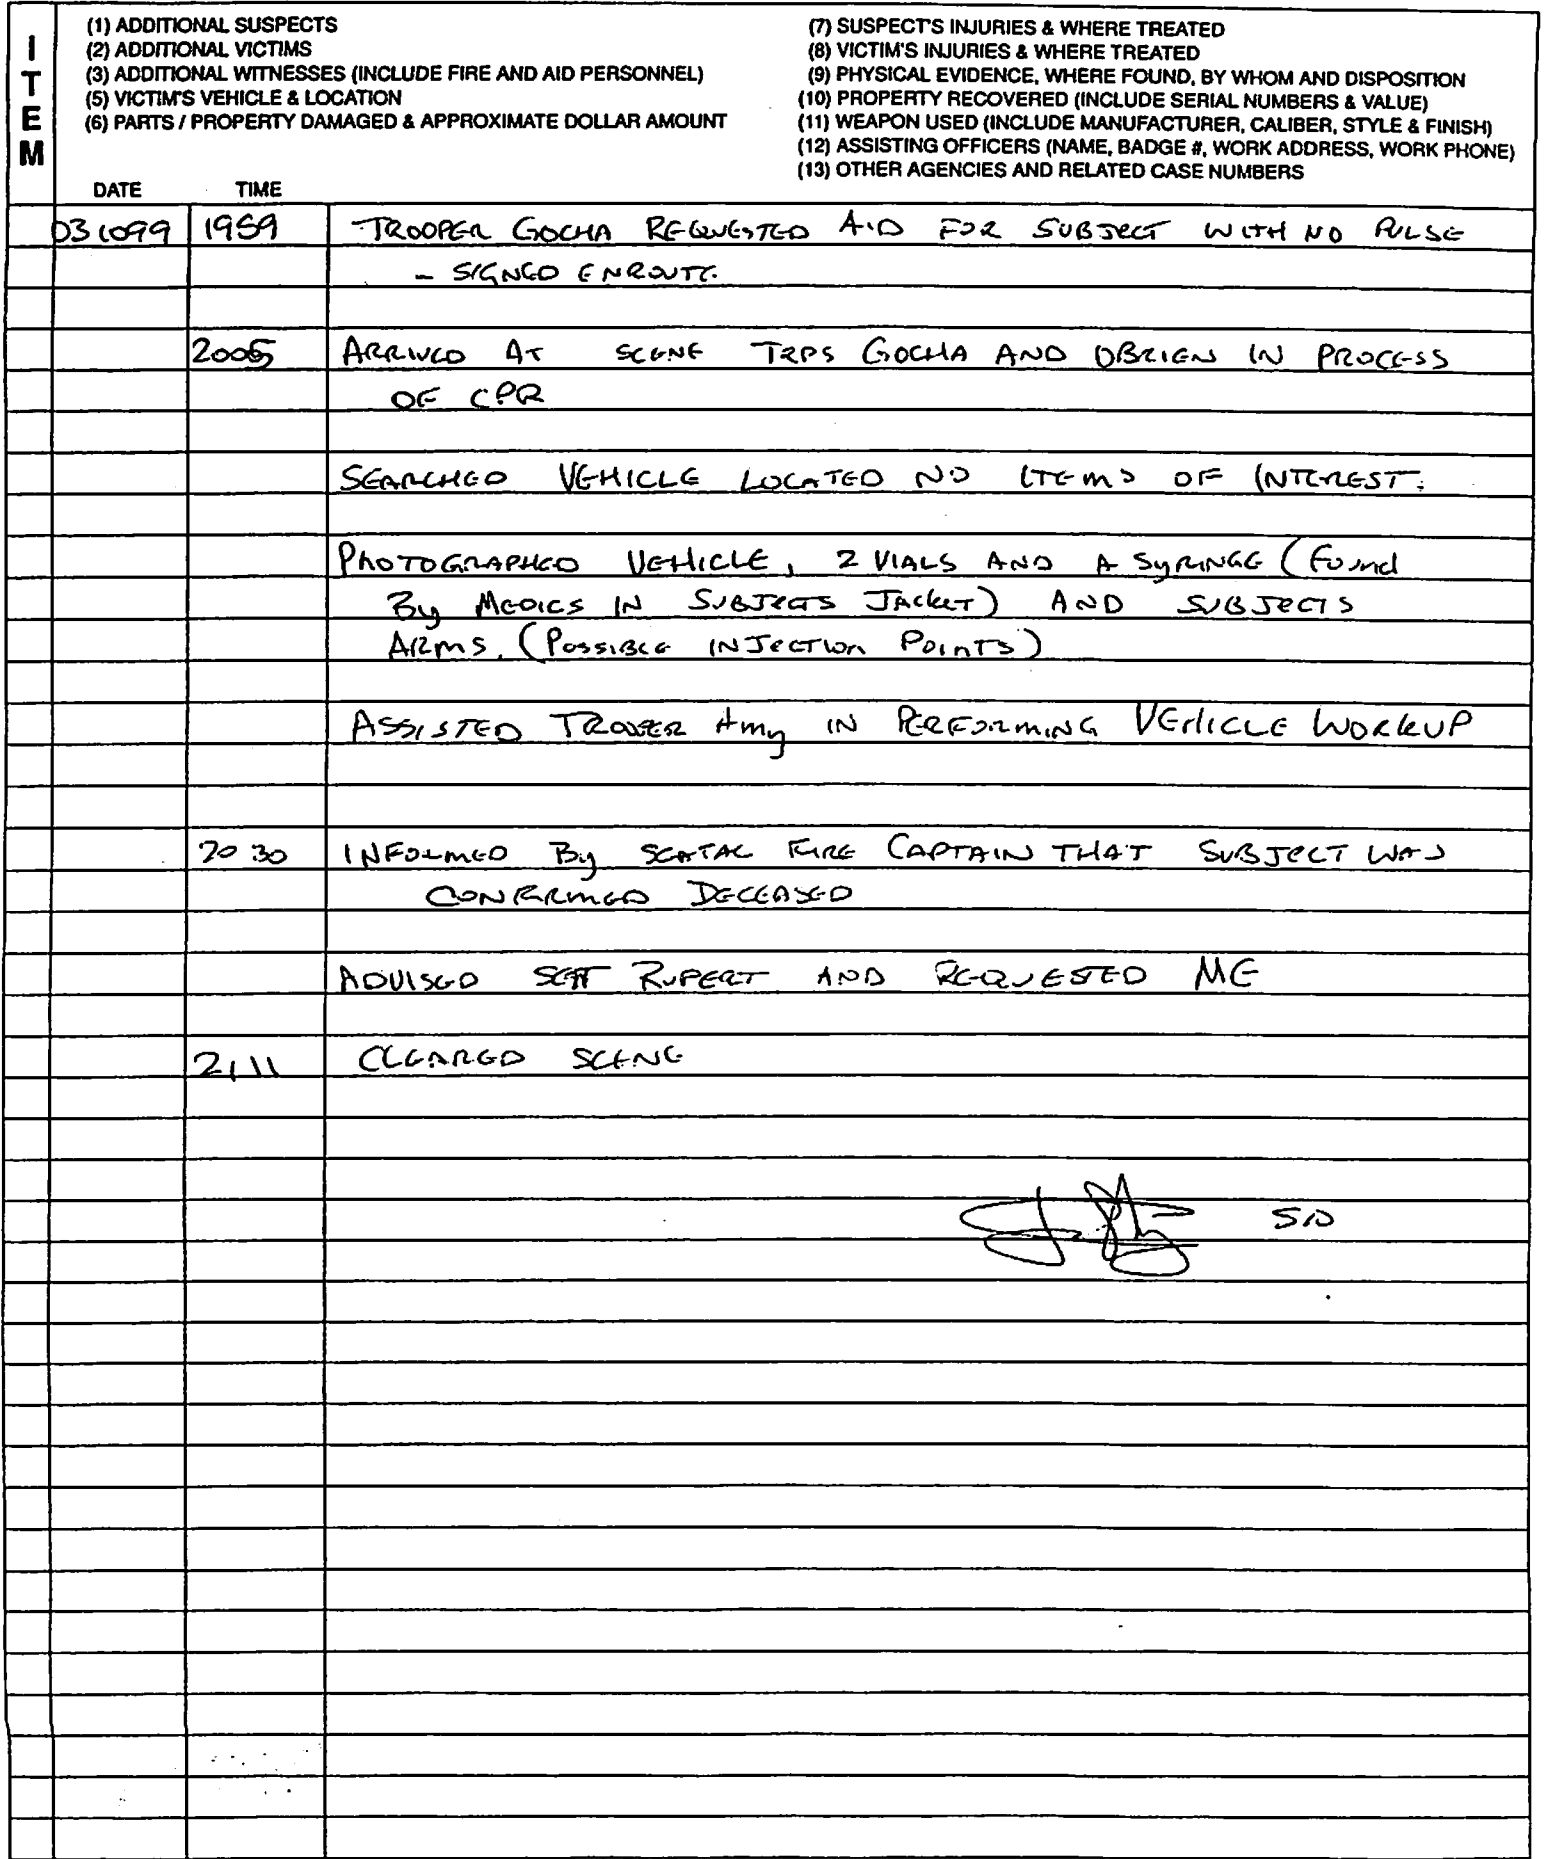 ITEM
(1) ADDITIONAL SUSPECTS
(2) ADDITIONAL VICTIMS
(3) ADDITIONAL WITNESSES (INCLUDE FIRE AND AID PERSONNEL)
(5) VICTIM'S VEHICLE & LOCATION
(6) PARTS / PROPERTY DAMAGED & APPROXIMATE DOLLAR AMOUNT
(7) SUSPECT'S INJURIES & WHERE TREATED
(8) VICTIM'S INJURIES & WHERE TREATED
(9) PHYSICAL EVIDENCE, WHERE FOUND, BY WHOM AND DISPOSITION
(10) PROPERTY RECOVERED (INCLUDE SERIAL NUMBERS & VALUE)
(11) WEAPON USED (INCLUDE MANUFACTURER, CALIBER, STYLE & FINISH)
(12) ASSISTING OFFICERS (NAME, BADGE #, WORK ADDRESS, WORK PHONE)
(13) OTHER AGENCIES AND RELATED CASE NUMBERS
DATE TIME
031099 1959 TROOPER GOCHA REQUESTED AID FOR SUBJECT WITH NO PULSE
- SIGNED ENROUTE.
2005 ARRIVED AT SCENE TRPS GOCHA AND OBRIEN IN PROCESS
OF CPR
SEARCHED VEHICLE LOCATED NO ITEMS OF INTEREST.
PHOTOGRAPHED VEHICLE, 2 VIALS AND A SYRINGE (Found
By MEDICS IN SUBJECTS JACKET) AND SUBJECTS
ARMS. (POSSIBLE INJECTION POINTS)
ASSISTED TROOPER Amy IN PERFORMING VEHICLE WORKUP
2030 INFORMED By SEATAC FIRE CAPTAIN THAT SUBJECT WAS
CONFIRMED DECEASED
ADVISED SGT RUPERT AND REQUESTED ME
2111 CLEARED SCENE